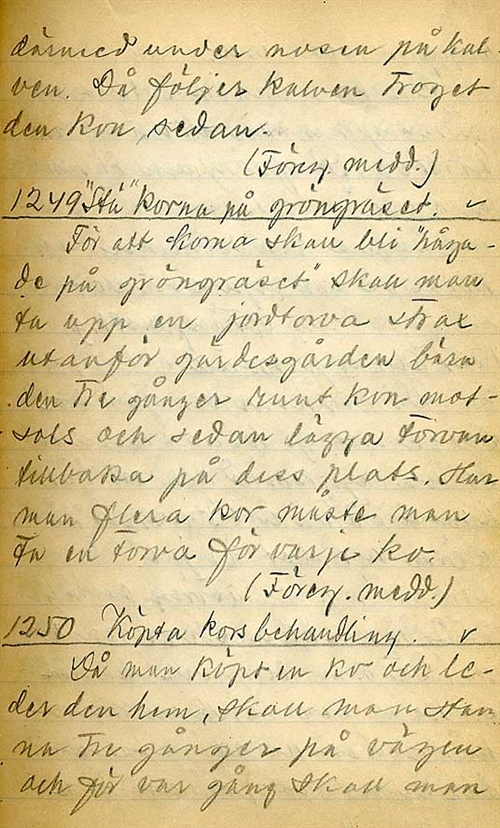 därmed under nosen på kal-
ven. Då följer kalven troget
den kon sedan.
(Föreg. medd.)
1249 "Stå" korna på gröngräset. ✓
För att korna skall bli "håga-
de på gröngräset" skall man
ta upp en jordtorva strax
utanför gärdesgården bära
den tre gånger runt kon mot-
sols och sedan lägga torvan
tillbaka på dess plats. Har
man flera kor måste man
ta en torva för varje ko.
(Föreg. medd.)
1250 Köpta kors behandling. ✓
Då man köpt en ko och le-
der den hem, skall man stan
na tre gånger på vägen
och för var gång skall man